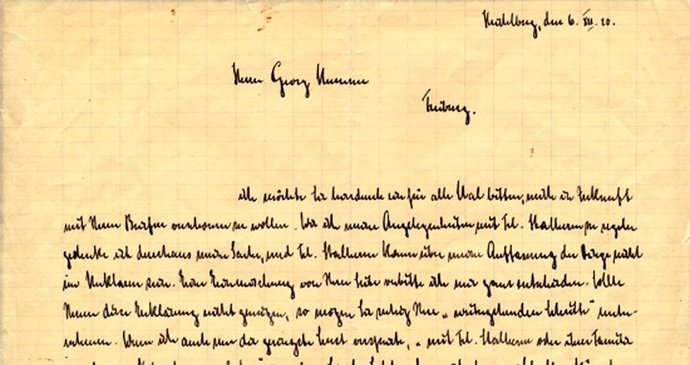 Heidelberg, den 6. XII. 10.
Herrn Georg
Freiburg.
ich möchte Sie hierdurch ein für alle Mal bitten, mich in Zukunft
mit Ihren Briefen verschonen zu wollen. Wie ich meine Angelegenheiten mit Frl. zu regeln
gedenke ist durchaus meine Sache, und Frl. kann über meine Auffassung der Dinge nicht
im Unklaren sein. Eine Einmischung von Ihrer Seite verbitte ich mir ganz entschieden. Sollte
Ihnen diese Erklärung nicht genügen, so mögen Sie ruhig Ihre „ Schritte" unter-
nehmen. Wenn ich auch nun die geringste Lust verspürte, „mit Frl. oder ihrer Familie